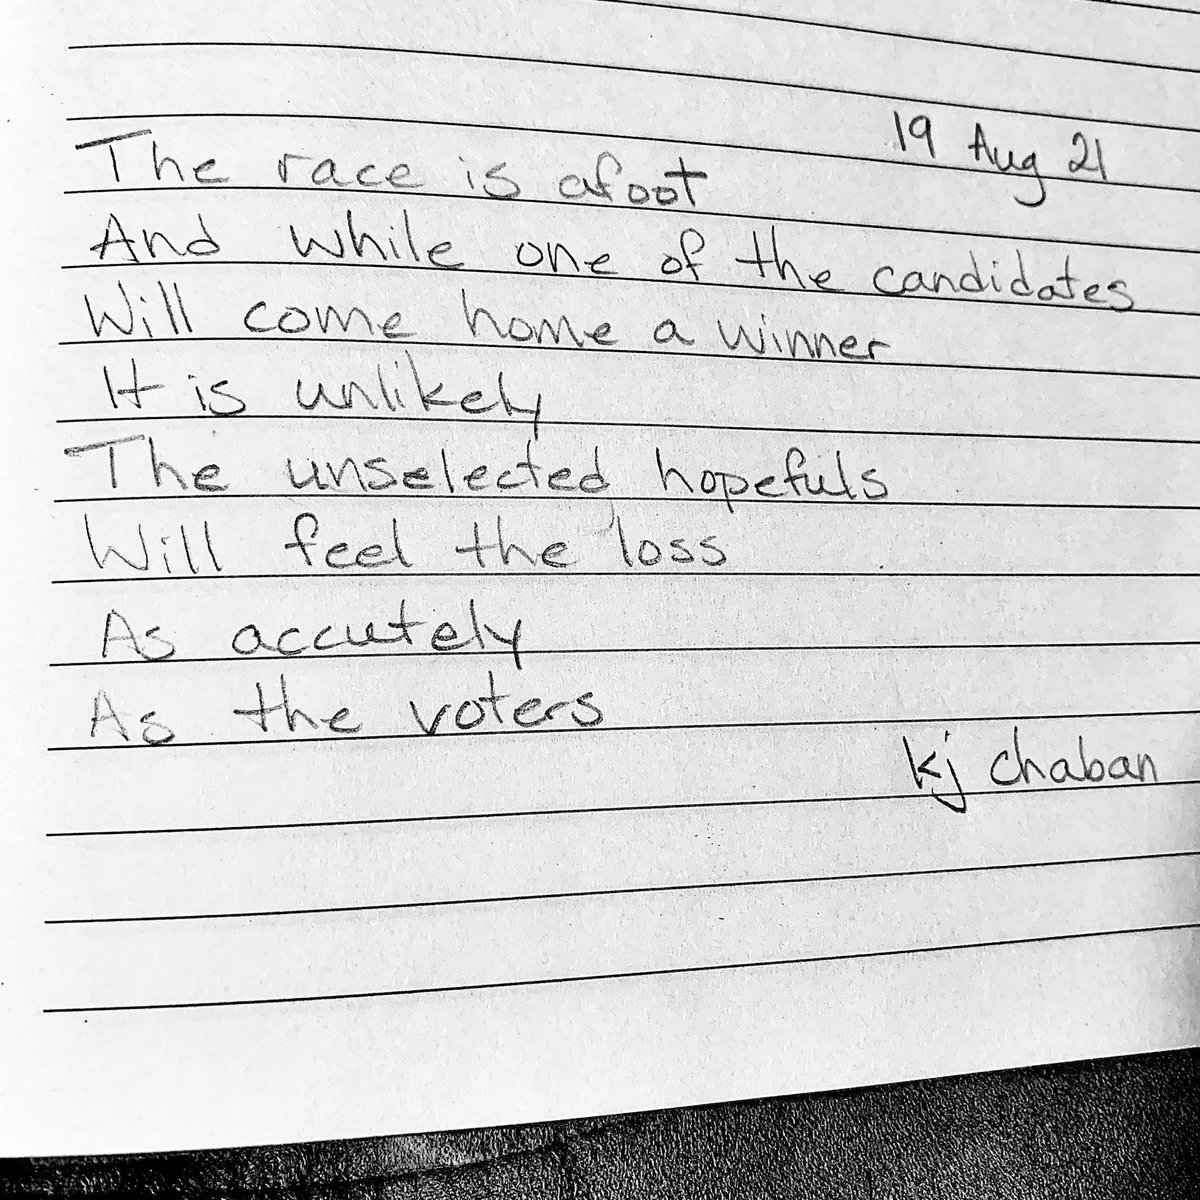 19 Aug 21
The race is afoot
And while one of the candidates
Will come home a winner
It is unlikely
The unselected hopefuls
Will feel the loss
As accutely
As the voters
kj chaban